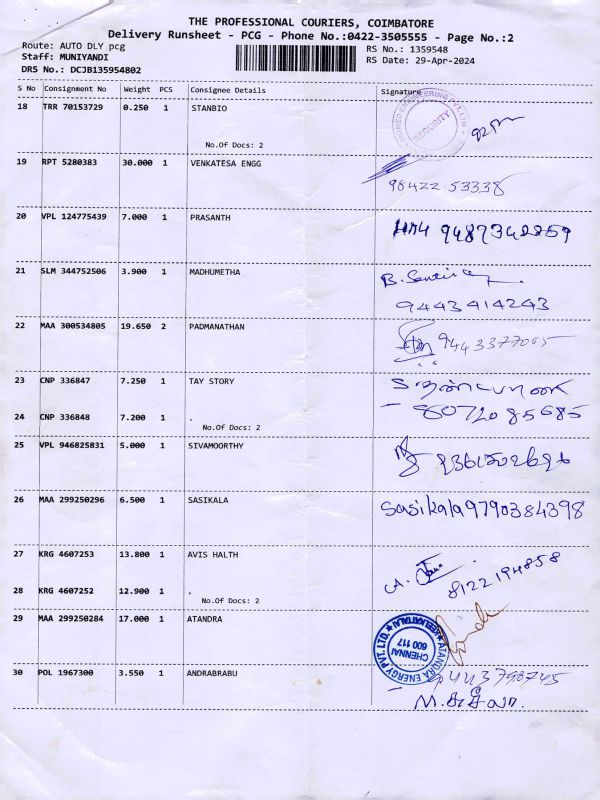 THE PROFESSIONAL COURIERS, COIMBATORE
Delivery Runsheet - PCG - Phone No.:0422-3505555 - Page No.:2
Route: AUTO DLY pcg
RS No.: 1359548
Staff: MUNIYANDI
RS Date: 29-Apr-2024
DRS No.: DCJB135954802
S No Consignment No Weight PCS Consignee Details Signature
18 TRR 70153729 0.250 1 STANBIO
ENGINEERING PVT.LTD.
SECURITY
No.Of Docs: 2
19 RPT 5280383 30.000 1 VENKATESA ENGG
98422 53338
20 VPL 124775439 7.000 1 PRASANTH
9487342259
21 SLM 344752506 3.900 1 MADHUMETHA
B.
9443414243
22 MAA 300534805 19.650 2 PADMANATHAN
9443377065
23 CNP 336847 7.250 1 TAY STORY
24 CNP 336848 7.200 1 .
8072085685
No.Of Docs: 2
25 VPL 946825831 5.000 1 SIVAMOORTHY
26 MAA 299250296 6.500 1 SASIKALA
Sasikala 9790384398
27 KRG 4607253 13.800 1 AVIS HALTH
8122194858
28 KRG 4607252 12.900 1 .
No.Of Docs: 2
29 MAA 299250284 17.000 1 ATANDRA
ATANDRA ENERGY PVT. LTD. ★ KEELKATTALAI ★
CHENNAI
600 117
30 POL 1967300 3.550 1 ANDRABRABU
9443798745